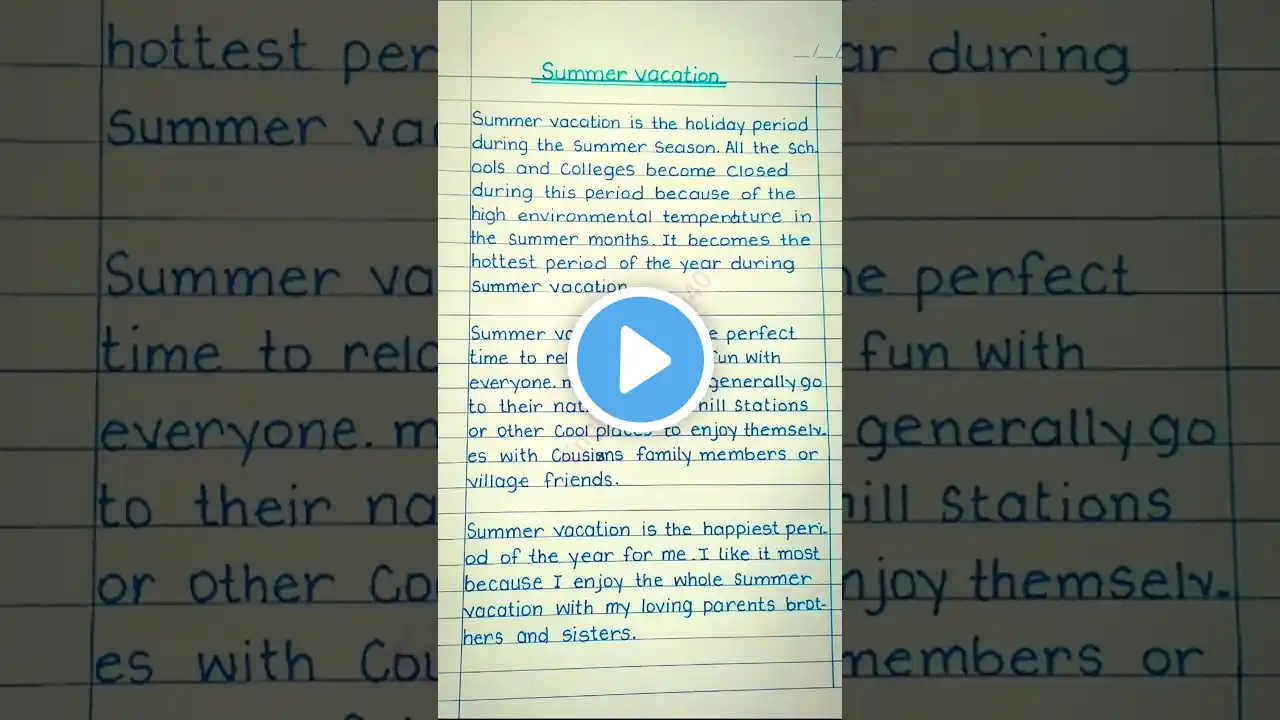 Summer vacation
Summer vacation is the holiday period
during the Summer Season. All the sch.
ools and Colleges become Closed
during this period because of the
high environmental temperature in
the Summer months. It becomes the
hottest period of the year during
Summer vacation
Summer perfect
time to fun with
everyone. generally go
to their hill Stations
or other Cool places to enjoy themselv-
es with Cousins family members or
village friends.
Summer vacation is the happiest peri-
od of the year for me. I like it most
because I enjoy the whole Summer
vacation with my loving parents brot-
hers and sisters.